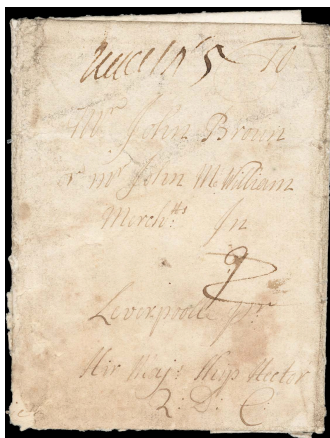 To
Mr John Brown
or mr John McWilliam
Merchts In
Leverpoole pr
Hir Maj: Ship Hector
Q: D: C: